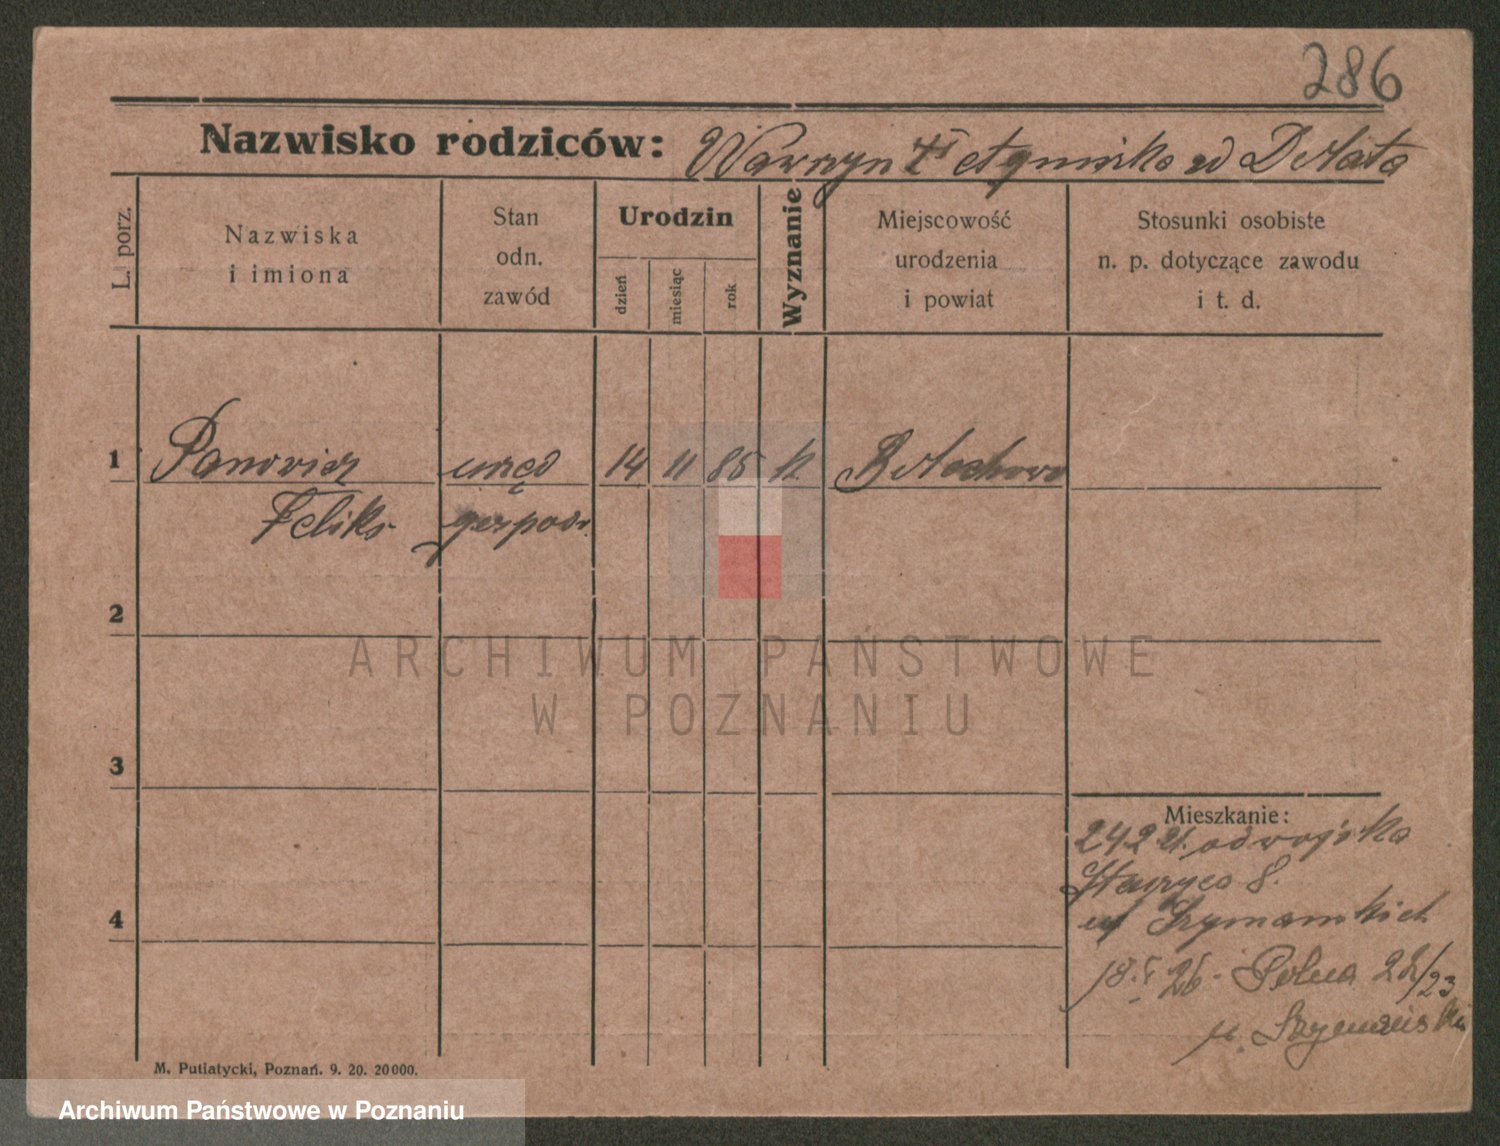 286
Nazwisko rodziców: Wawrzyn
L. porz.
Nazwiska
i imiona
Stan
odn.
zawód
Urodzin
dzień
miesiąc
rok
Wyznanie
Miejscowość
urodzenia
i powiat
Stosunki osobiste
n. p. dotyczące zawodu
i t. d.
1 Panowicz urzęd 14 11 85 k.
Feliks gospod.
2
3
Mieszkanie:
od wojska
8.
4
Szymańskich
26. Polna 23
M. Putiatycki, Poznań. 9. 20. 20000.
ARCHIWUM PAŃSTWOWE
W POZNANIU
Archiwum Państwowe w Poznaniu